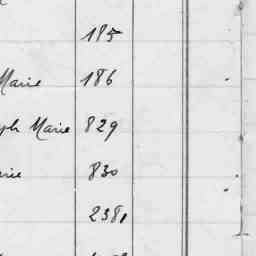 185
Marie 186
Marie 829
830
2381